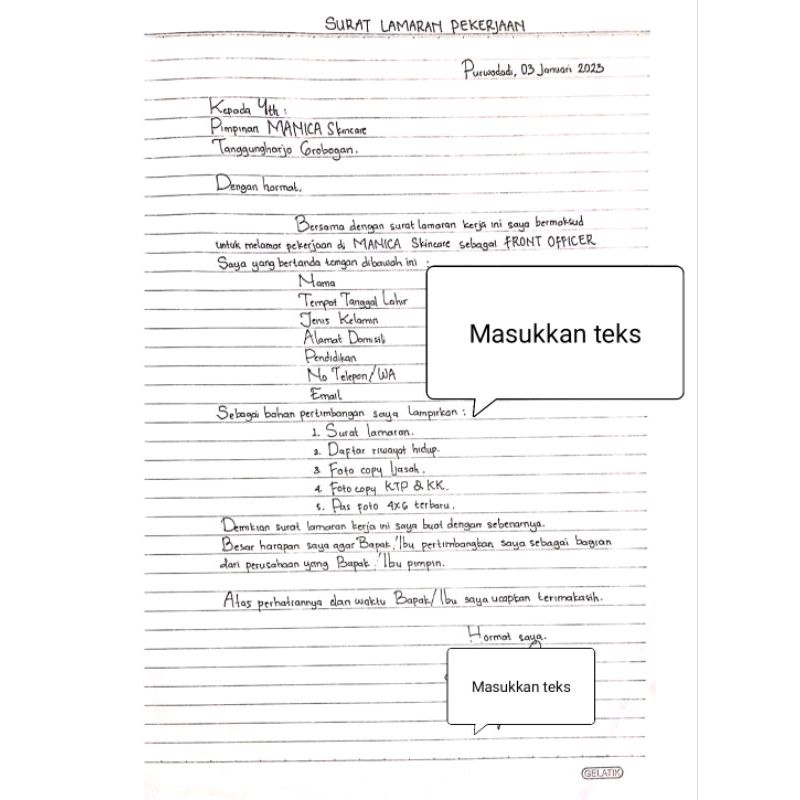 SURAT LAMARAN PEKERJAAN
Purwodadi, 03 Januari 2023
Kepada Yth :
Pimpinan MANICA Skincare
Tanggungharjo Grobogan.
Dengan hormat,
Bersama dengan surat lamaran kerja ini saya bermaksud
untuk melamar pekerjaan di MANICA Skincare sebagai FRONT OFFICER
Saya yang bertanda tangan dibawah ini :
Nama
Tempat Tanggal Lahir
Jenis Kelamin
Alamat Domisili
Pendidikan
No Telepon/WA
Email
Masukkan teks
Sebagai bahan pertimbangan saya lampirkan :
1. Surat lamaran.
2. Daftar riwayat hidup.
3 Foto copy Ijasah.
4 Foto copy KTP & KK.
5. Pas foto 4x6 terbaru.
Demikian surat lamaran kerja ini saya buat dengan sebenarnya.
Besar harapan saya agar Bapak/Ibu pertimbangkan saya sebagai bagian
dari perusahaan yang Bapak/Ibu pimpin.
Atas perhatiannya dan waktu Bapak/Ibu saya ucapkan terimakasih.
Hormat saya.
Masukkan teks
GELATIK